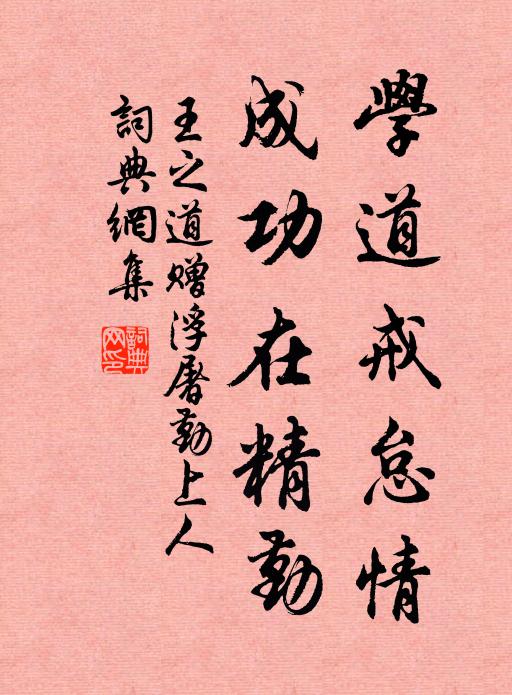 學道戒怠情
成功在精勤
王之道贈浮屠勤上人
詞典網集
詞典
网印